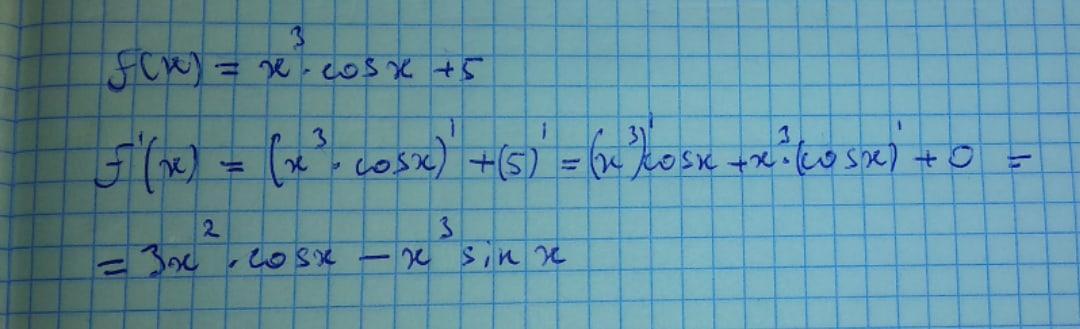 f(x) = x³ · cosx + 5
f'(x) = (x³ · cosx)' + (5)' = (x³)'cosx + x³·(cosx)' + 0 =
= 3x² · cosx − x³ sin x